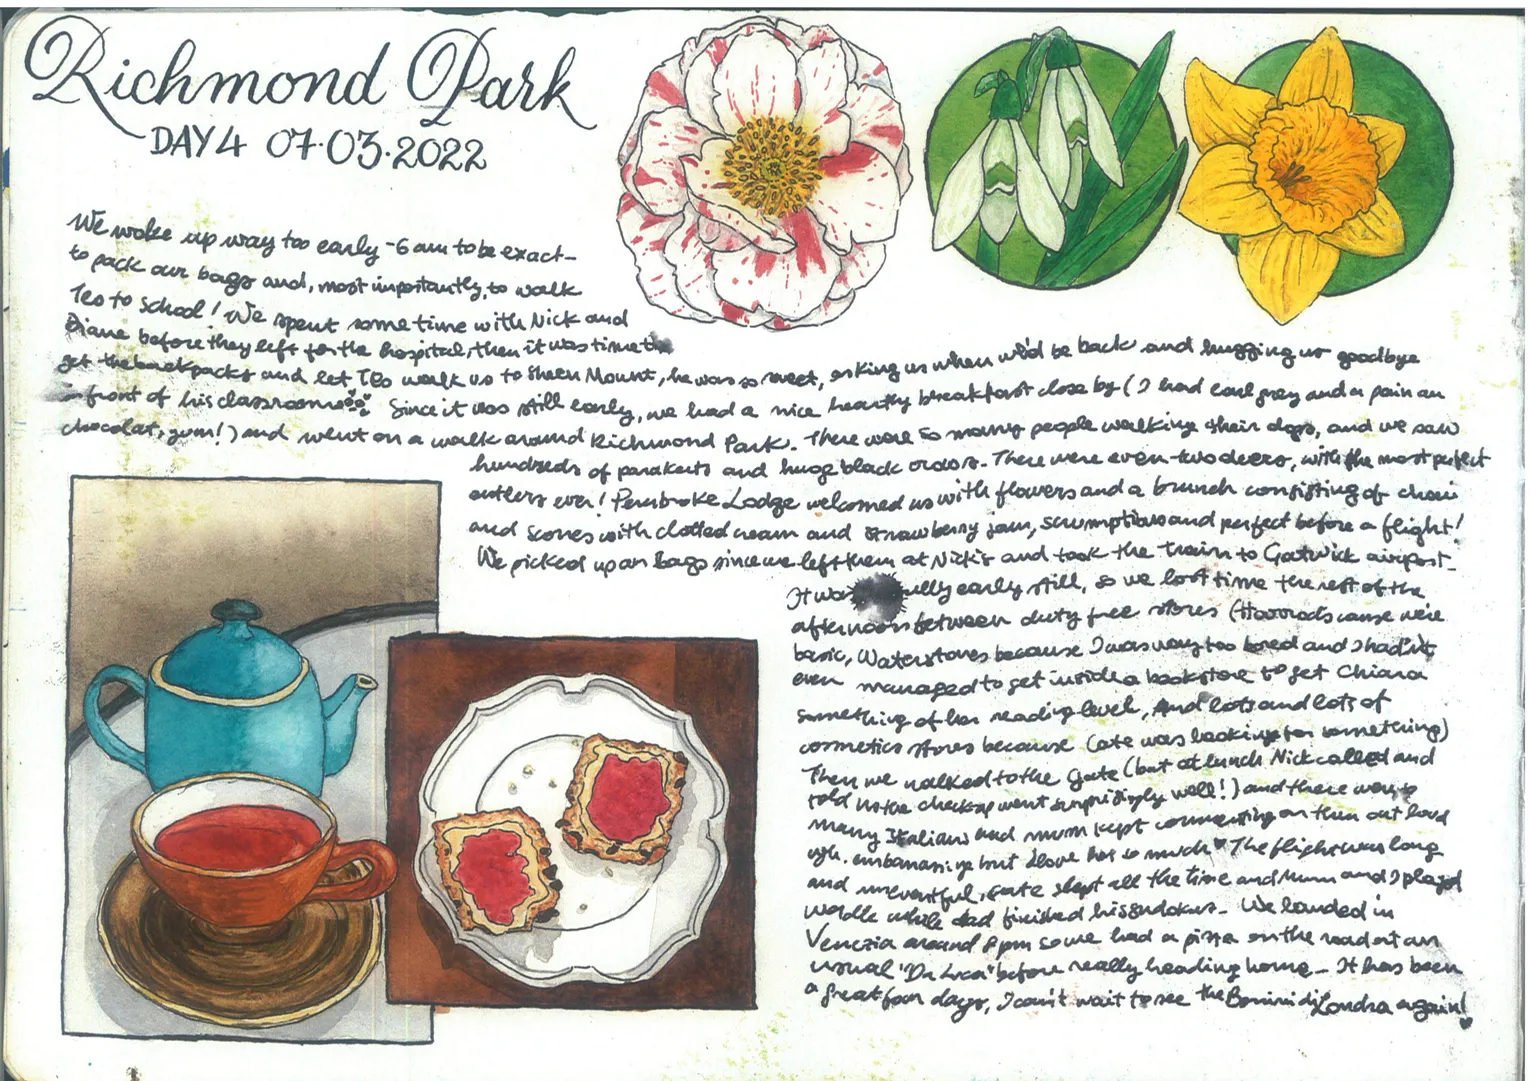 Richmond Park
DAY 4 07.03.2022
We woke up way too early - 6 am to be exact -
to pack our bags and, most importantly, to walk
Teo to school! We spent some time with Nick and
Diane before they left for the hospital, then it was time to
get the backpacks and let Teo walk us to Sheen Mount, he was so sweet, asking us when we'd be back and hugging us goodbye
in front of his classroom Since it was still early, we had a nice hearty breakfast close by (I had earl grey and a pain au
chocolat, yum!) and went on a walk around Richmond Park. There were so many people walking their dogs, and we saw
hundreds of parakeets and huge black crows. There were even two deers, with the most perfect
antlers ever! Pembroke Lodge welcomed us with flowers and a brunch consisting of chai
and scones with clotted cream and strawberry jam, scrumptious and perfect before a flight!
We picked up our bags since we left them at Nick's and took the train to Gatwick airport.
It was early still, so we lost time the rest of the
afternoon between duty free stores (Harrods cause we're
basic, Waterstones because I was way too bored and I hadn't
even managed to get inside a bookstore to get Chiara
something of her reading level, and lots and lots of
cosmetics stores because Cate was looking for something)
Then we walked to the gate (but at lunch Nick called and
told us the checkup went surprisingly well!) and there were so
many Italians and mum kept commenting on them out loud
ugh. embarrassing but I love her so much ♥ The flight was long
and uneventful, Cate slept all the time and Mum and I played
wordle while dad finished his sudokus. We landed in
Venezia around 8 pm so we had a pizza on the road at our
usual "Da Luca" before really heading home. It has been
a great four days, I can't wait to see the Bonini di Londra again! ♥